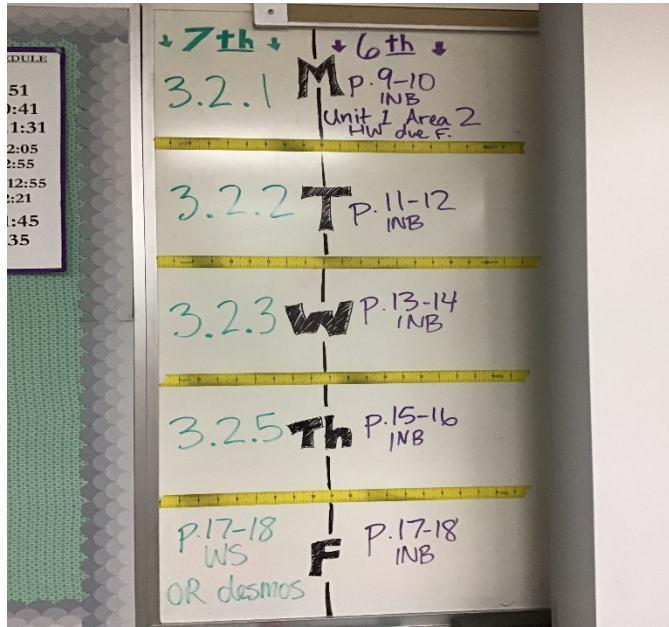 EDULE
51
:41
11:31
2:05
2:55
12:55
2:21
:45
35
↓ 7th ↓
↓ 6th ↓
3.2.1
M
p. 9-10
INB
Unit 1 Area 2
HW due F.
3.2.2
T
p. 11-12
INB
3.2.3
W
p. 13-14
INB
3.2.5
Th
p. 15-16
INB
p. 17-18
WS
OR desmos
F
p. 17-18
INB